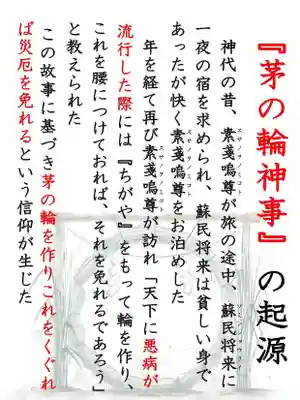 『茅の輪神事』の起源
神代の昔、素戔嗚尊が旅の途中、蘇民将来に
一夜の宿を求められ、蘇民将来は貧しい身で
あったが快く素戔嗚尊をお泊めした
年を経て再び素戔嗚尊が訪れ「天下に悪病が
流行した際には『ちがや』をもって輪を作り、
これを腰につけておれば、それを免れるであろう」
と教えられた
この故事に基づき茅の輪を作りこれをくぐれ
ば災厄を免れるという信仰が生じた